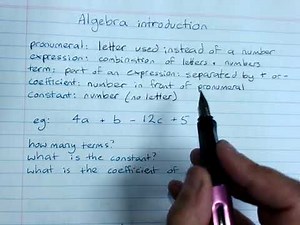 Algebra introduction
pronumeral: letter used instead of a number
expression: combination of letters + numbers
term: part of an expression separated by + or -
coefficient: number in front of pronumeral
constant: number (no letter)
eg: 4a + b - 12c + 5
how many terms?
what is the constant?
what is the coefficient of